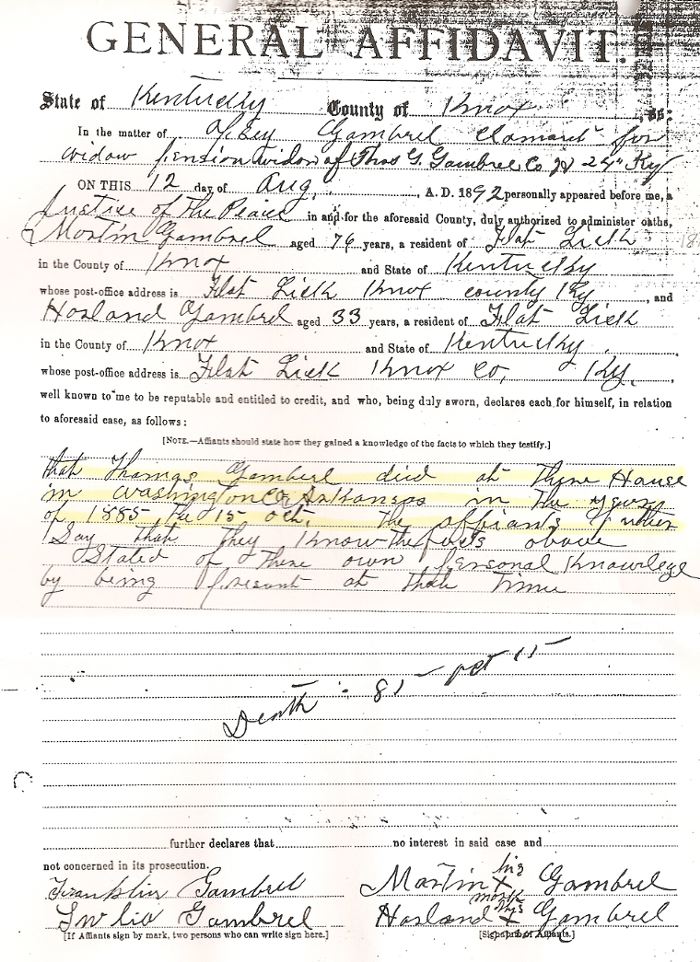 GENERAL AFFIDAVIT.
State of Kentucky County of Knox, ss:
In the matter of Gambrel Clamant for
widow pension widow of Thos G. Gambrel Co 24" Ky
ON THIS 12 day of Aug, A. D. 1892 personally appeared before me, a
Justice of the Peace in and for the aforesaid County, duly authorized to administer oaths,
Martin Gambrel aged 76 years, a resident of Flat Lick
in the County of Knox and State of Kentucky
whose post-office address is Flat Lick Knox county Ky, and
Hosland Gambrel aged 33 years, a resident of Flat Lick
in the County of Knox and State of Kentucky
whose post-office address is Flat Lick Knox Co, Ky.
well known to me to be reputable and entitled to credit, and who, being duly sworn, declares each for himself, in relation
to aforesaid case, as follows:
[NOTE.—Affiants should state how they gained a knowledge of the facts to which they testify.]
that Thomas Gambrel died at House
in Washington Co Arkansas in The year
of 1885, the 15 Oct. The affiants further
Say that they Know the facts above
Stated of There own personal Knowlege
by being presant at that time
Death : 85 oct 15
further declares that no interest in said case and
not concerned in its prosecution.
Franklin Gambrel Martin his x mark Gambrel
Gambrel Hosland his x Gambrel
[If Affiants sign by mark, two persons who can write sign here.] [Signature of Affiants.]